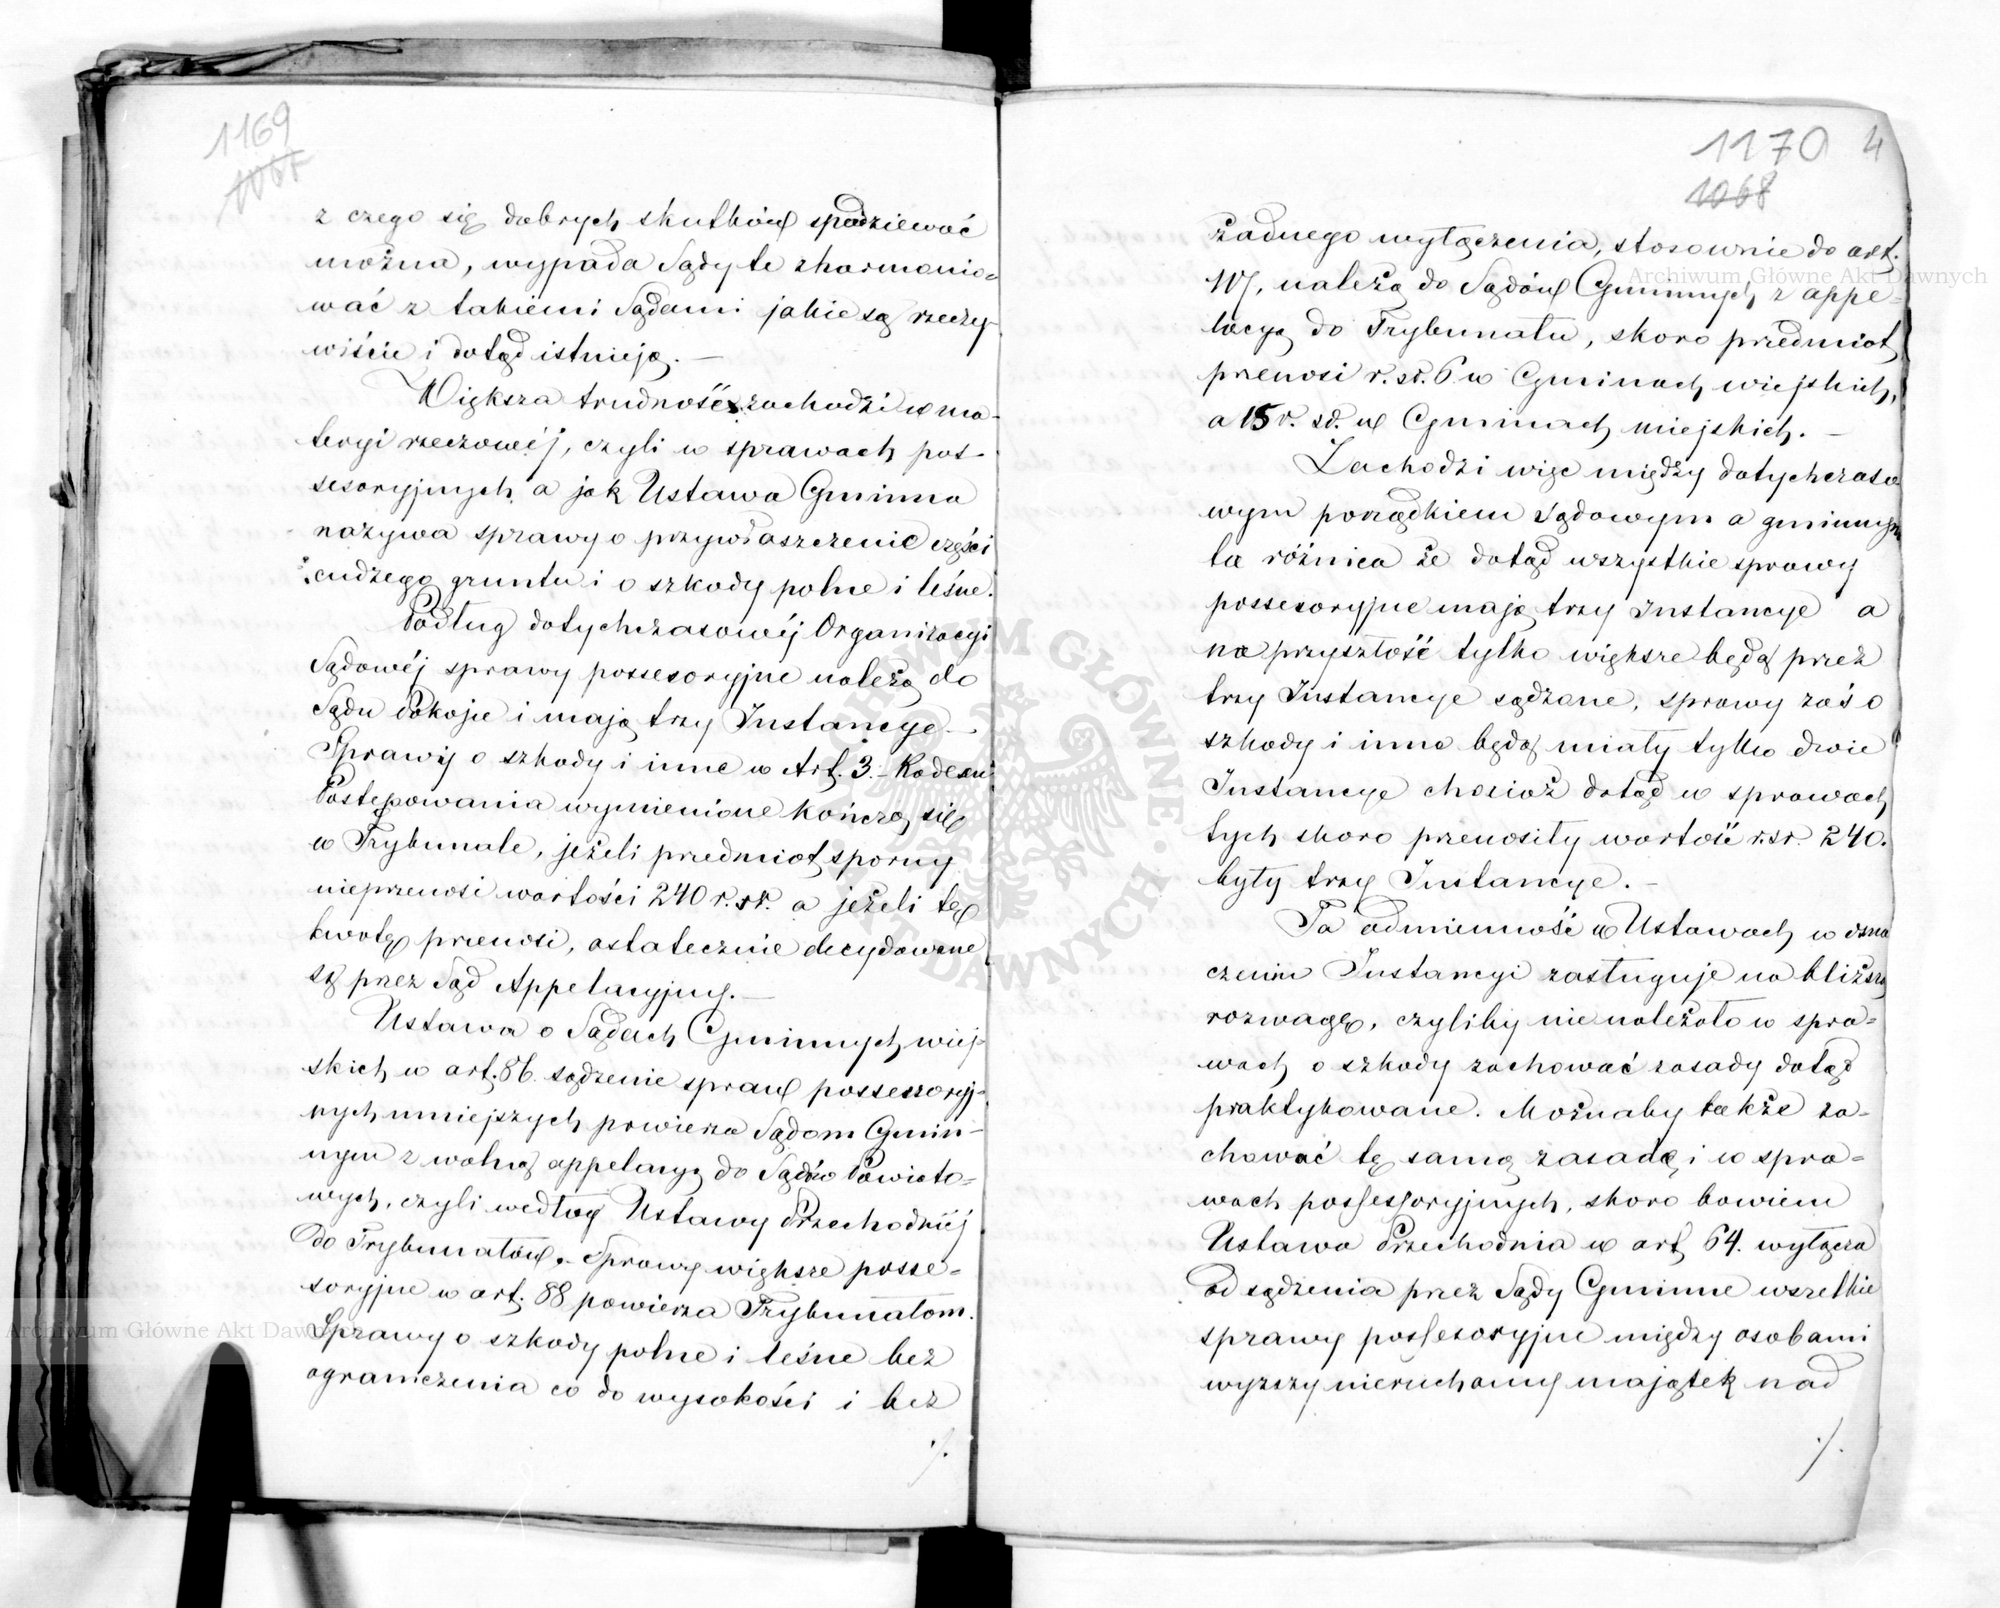 1169
1067
z czego się dobrych skutków spodziewać
można, wypada Sądy te zharmonio=
wać z takiemi Sądami jakie są rzeczy-
wiście i dotąd istnieją. —
Większa trudność zachodzi w ma-
teryi rzeczowéj, czyli w sprawach pos-
sesoryjnych a jak Ustawa Gminna
nazywa sprawy o przywłaszczenie części
cudzego gruntu i o szkody polne i leśne.
Podług dotychczasowéj Organizacyi
Sądowéj sprawy possesoryjne należą do
Sądu Pokoju i mają trzy Instancye —.
Sprawy o szkody i inne w Art. 3. – Kodexu
Postępowania wymienione kończą się
w Trybunale, jeżeli przedmiot sporny
nieprzenosi wartości 240 r. sr. a jeżeli tę
kwotę przenosi, ostatecznie decydowane
są przez Sąd Appelacyjny. —
Ustawa o Sądach Gminnych wiej-
skich w art. 86. sądzenie spraw possessoryj-
nych mniejszych powierza Sądom Gmin-
nym z wolną appelacyą do Sądów Powiato=
wych, czyli według Ustawy Przechodniéj
do Trybunałów. – Sprawy większe posse-
soryjne w art. 88 powierza Trybunałom.
Sprawy o szkody polne i leśne bez
ograniczenia co do wysokości i bez
./.
1170 4
1068
żadnego wyłączenia, stosownie do art.
107, należą do Sądów Gminnych z appe-
lacyą do Trybunału, skoro przedmiot
przenosi r. sr. 6 w Gminach wiejskich,
a 15 r. sr. w Gminach miejskich. —
Zachodzi więc między dotychczaso
wym porządkiem sądowym a gminnym
ta różnica że dotąd wszystkie sprawy
possesoryjne mają trzy Instancye a
na przyszłość tylko większe będą przez
trzy Instancye sądzone, sprawy zaś o
szkody i inne będą miały tylko dwie
Instancye chociaż dotąd w sprawach
tych skoro przenosiły wartość r. sr. 240.
były trzy Instancye. —
Ta odmienność w Ustawach w ozna
czeniu Instancyi zasługuje na bliższą
rozwagę, czyliby nie należało w spra=
wach o szkody zachować zasady dotąd
praktykowane. Możnaby także za-
chować tę samą zasadę i w spra=
wach possessoryjnych, skoro bowiem
Ustawa Przechodnia w art 64. wyłącza
od sądzenia przez Sądy Gminne wszelkie
sprawy possesoryjne między osobami
wyższy nieruchomy majątek nad
./.
Archiwum Główne Akt Dawnych
Archiwum Główne Akt Dawnych
ARCHIWUM GŁÓWNE AKT DAWNYCH